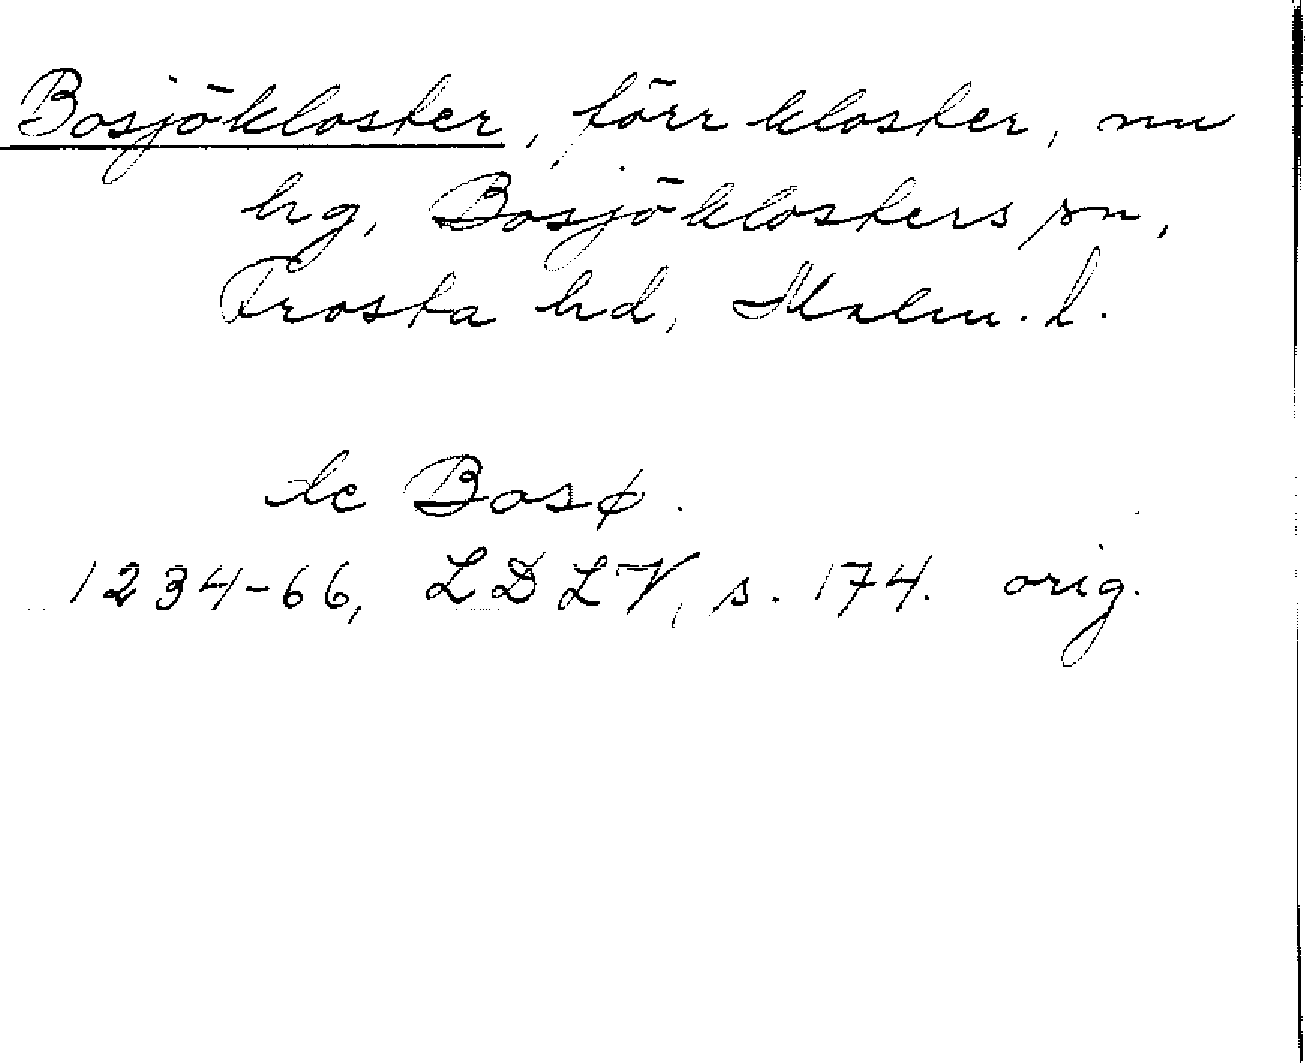 Bosjökloster, förr kloster, nu
hg, Bosjöklosters sn,
Frosta hd, Malm. l.
de Bosø.
1234-66, LDLV, s. 174. orig.